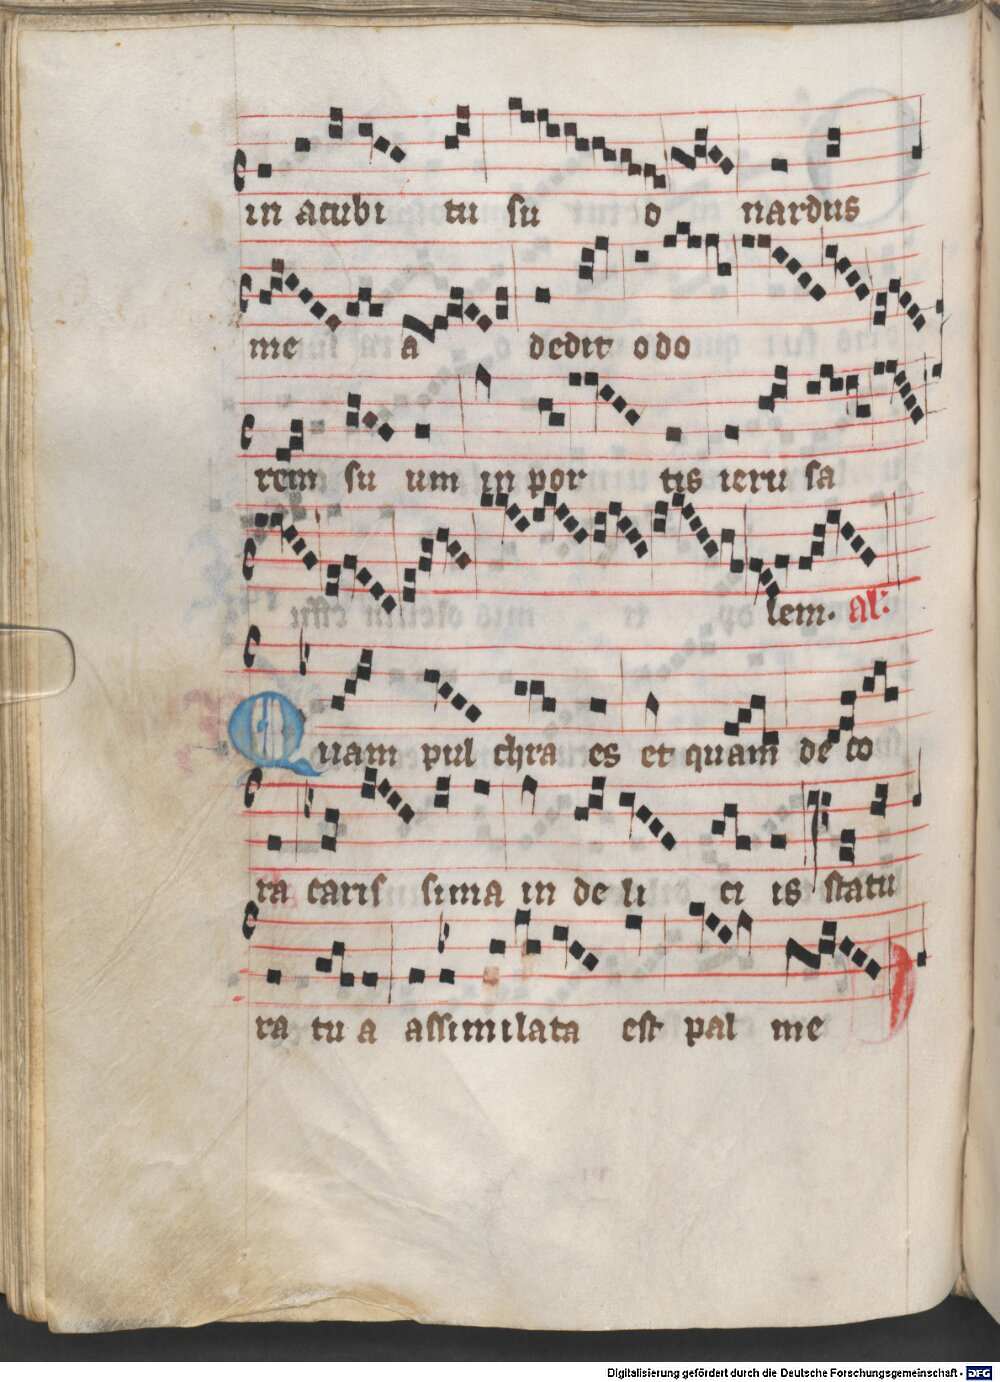 in acubi tu su o nardus
me a dedit odo
rem su um in por tis ieru sa
lem. al:
Quam pul chra es et quam de co
ra caris sima in de li ci is statu
ra tu a assimilata est pal me
Digitalisierung gefördert durch die Deutsche Forschungsgemeinschaft - DFG